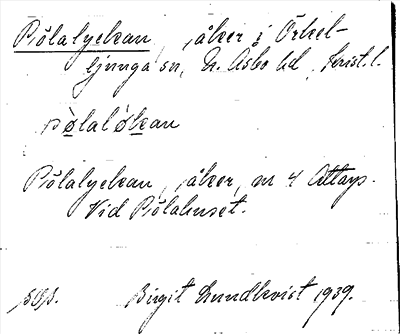 Pölalyckan, åker i Örkel-
ljunga sn, N. Åsbo hd, Krist. l.
pølaløkan
Pölalyckan, åker, nr 4 Attarp.
Vid Pölahuset.
sos. Birgit Lundkvist 1939.